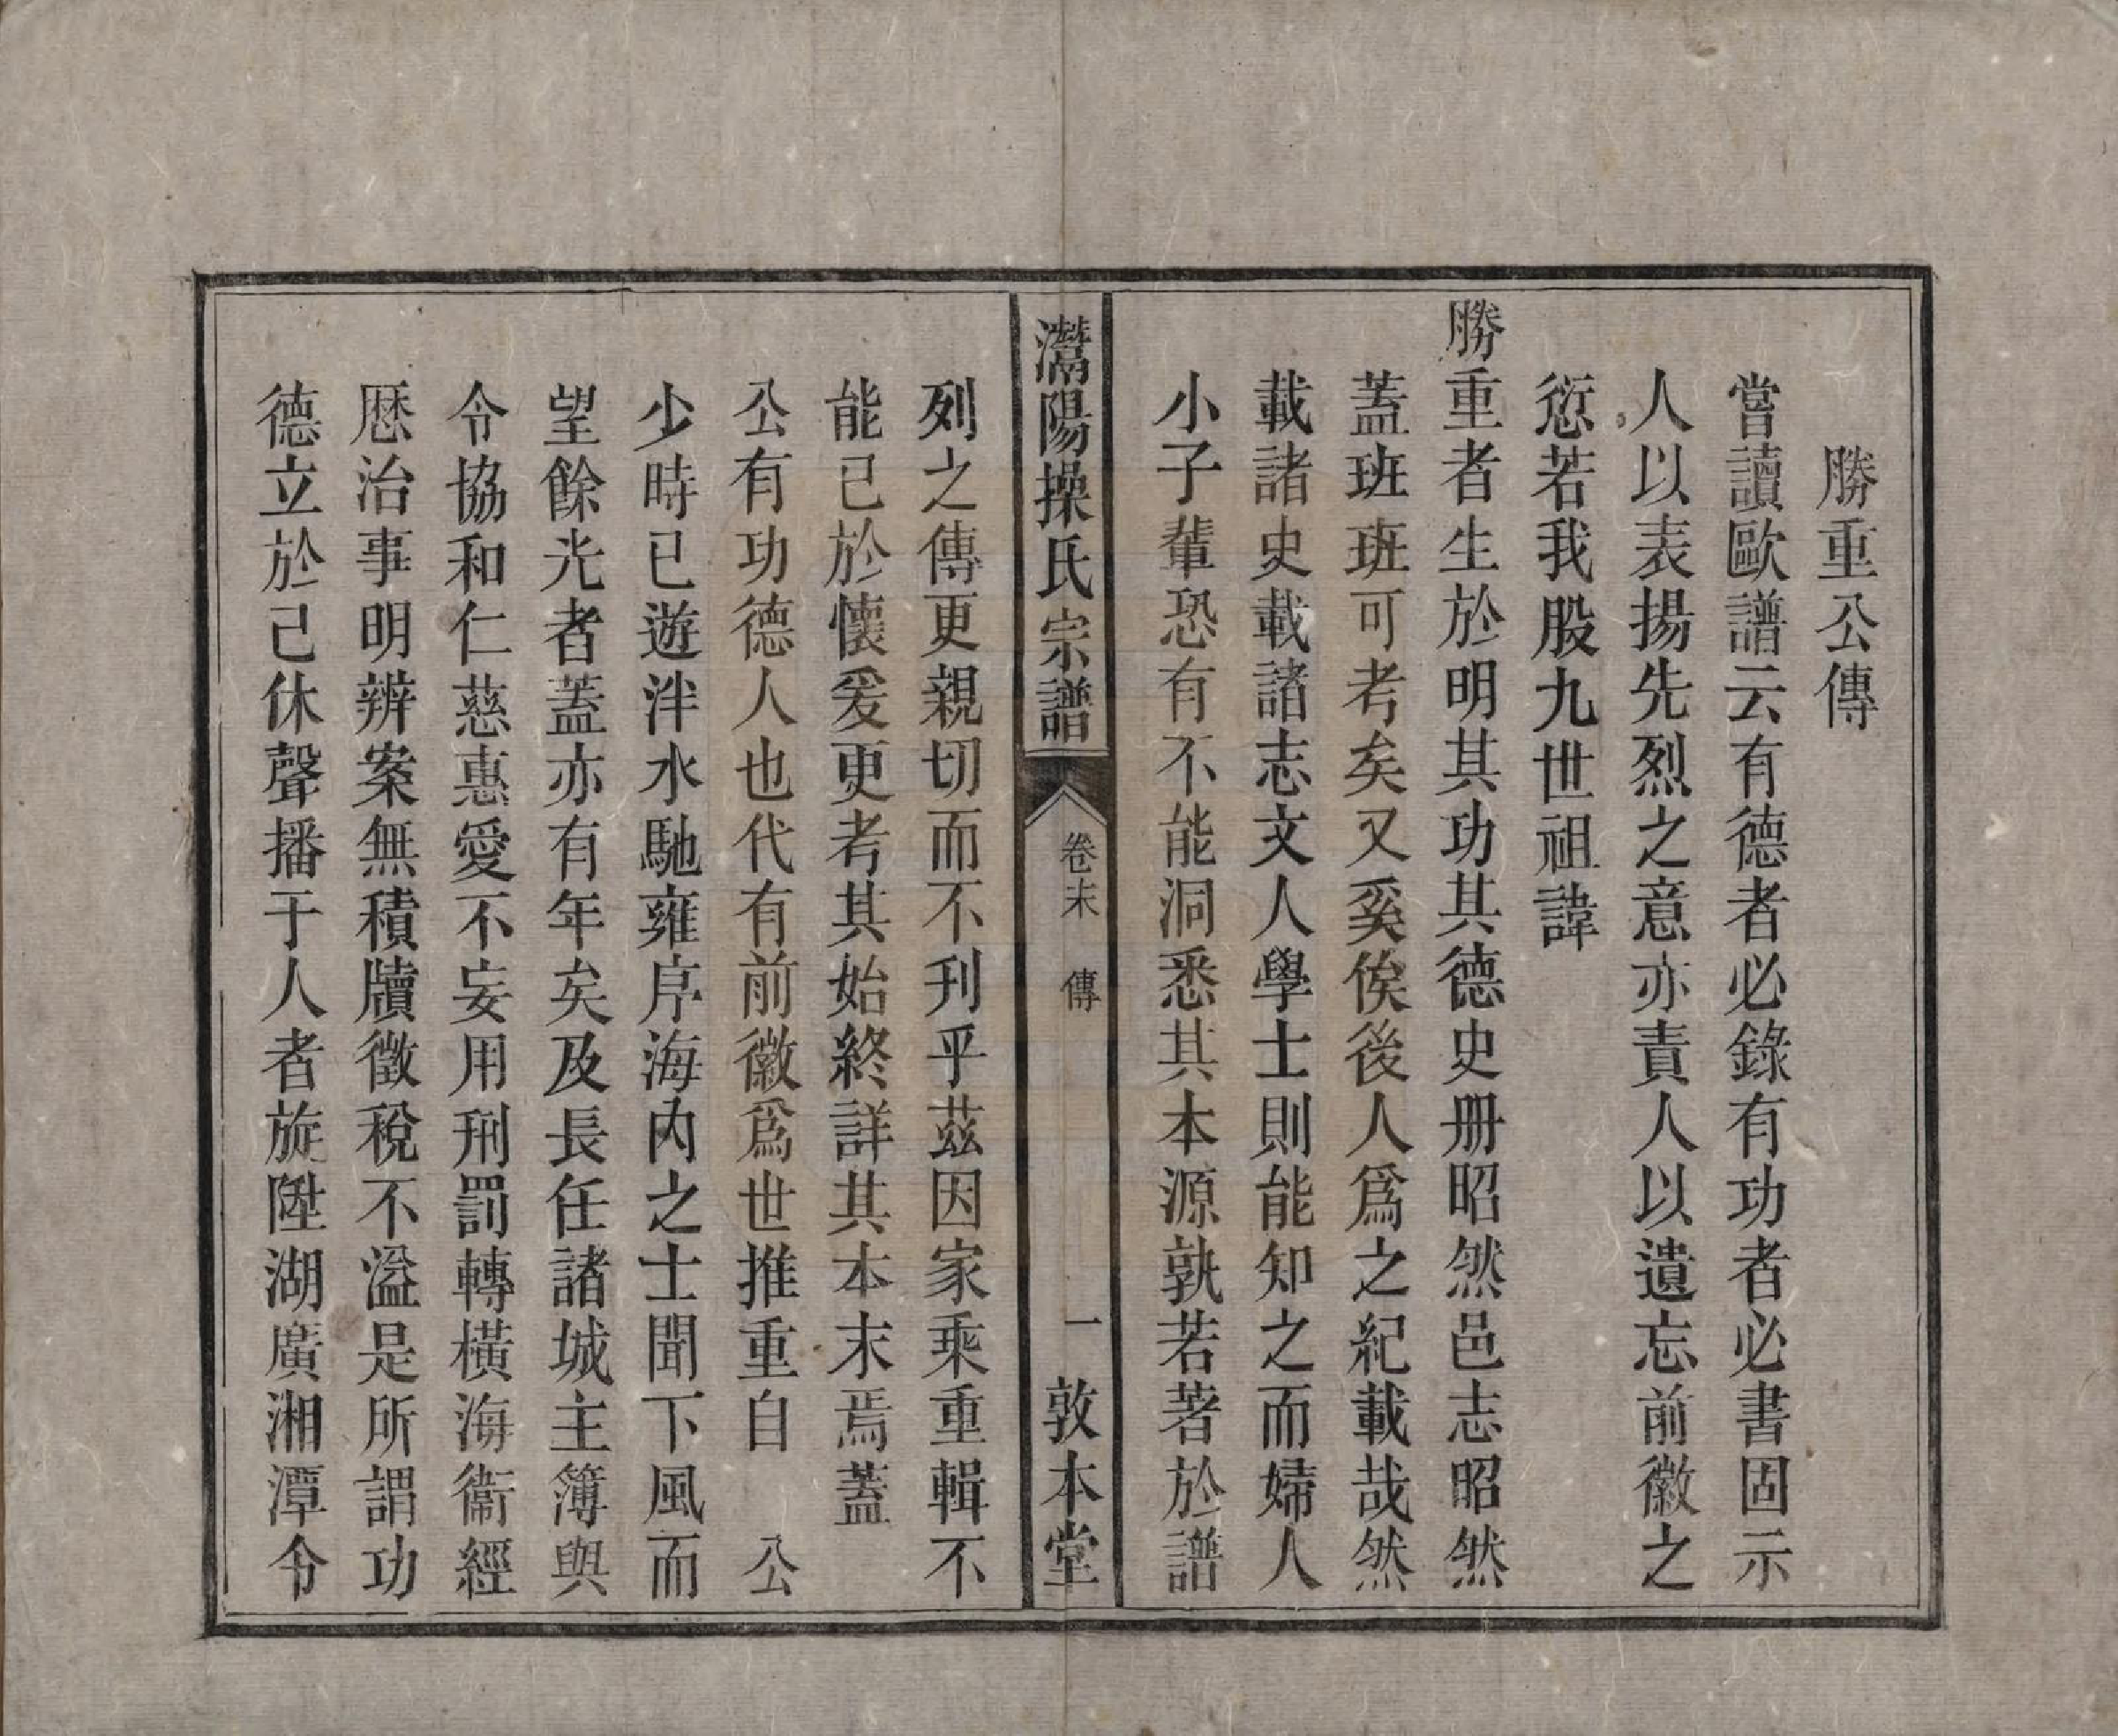 勝重公傳
嘗讀歐譜云有德者必錄有功者必書固示
人以表揚先烈之意亦責人以遺忘前徽之
愆若我股九世祖諱
勝重者生於明其功其德史册昭然邑志昭然
蓋班班可考矣又奚俟後人爲之紀載哉然
載諸史載諸志文人學士則能知之而婦人
小子輩恐有不能洞悉其本源孰若著於譜
灊陽操氏宗譜
卷末
傳
一
敦本堂
列之傳更親切而不刋乎茲因家乘重輯不
能已於懷爰更考其始終詳其本末焉蓋
公有功德人也代有前徽爲世推重自　公
少時已遊泮水馳雍序海內之士聞下風而
望餘光者蓋亦有年矣及長任諸城主簿與
令協和仁慈惠愛不妄用刑罰轉橫海衞經
厯治事明辨案無積牘徵稅不溢是所謂功
德立於己休聲播于人者旋陞湖廣湘潭令